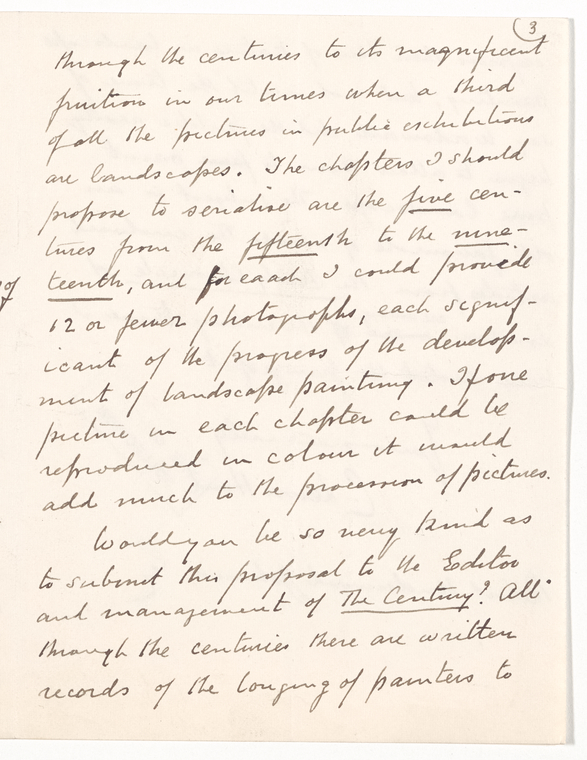 3
through the centuries to its magnificent
fruition in our times when a third
of all the pictures in public exhibitions
are landscapes. The chapters I should
propose to serialise are the five cen-
turies from the fifteenth to the nine-
teenth, and for eaach I could provide
12 or fewer photographs, each signif-
icant of the progress of the develop-
ment of landscape painting. If one
picture in each chapter could be
reproduced in colour it would
add much to the procession of pictures.
Would you be so very kind as
to submit this proposal to the Editor
and management of The Century? All
through the centuries there are written
records of the longing of painters to
of